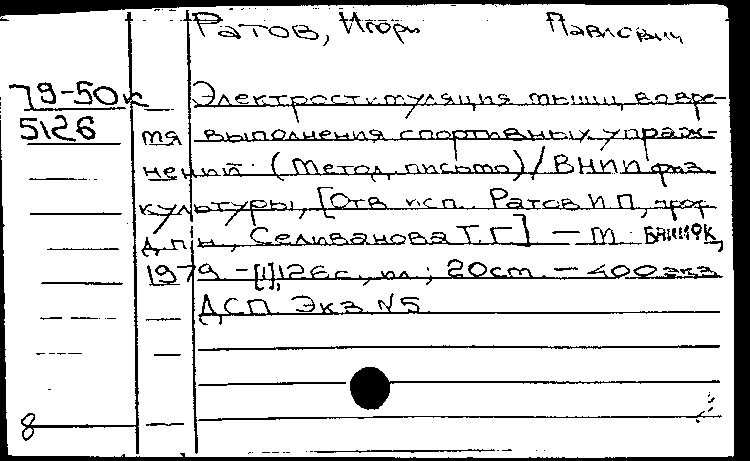 Ратов, Игорь Павлович
79-50к Электростимуляция мышц во вре-
5126 мя выполнения спортивных упраж-
нений: (Метод. письмо) / ВНИИ физ.
культуры, [Отв. исп. Ратов И.П., проф.
д.п.н., Селиванова Т.Г.] — М.: ВНИИФК,
1979. - [1], 126 с., ил.; 20 см. — 400 экз.
ДСП. Экз. N5
8